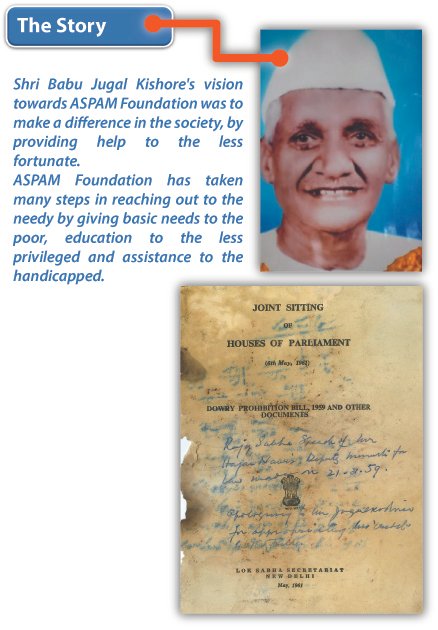 The Story
Shri Babu Jugal Kishore's vision
towards ASPAM Foundation was to
make a difference in the society, by
providing help to the less
fortunate.
ASPAM Foundation has taken
many steps in reaching out to the
needy by giving basic needs to the
poor, education to the less
privileged and assistance to the
handicapped.
JOINT SITTING
OF
HOUSES OF PARLIAMENT
(6th May, 1961)
DOWRY PROHIBITION BILL, 1959 AND OTHER
DOCUMENTS
Rajya Sabha Speech of
Deputy Minister for
Law on 21-3-59.
to
for
LOK SABHA SECRETARIAT
NEW DELHI
May, 1961